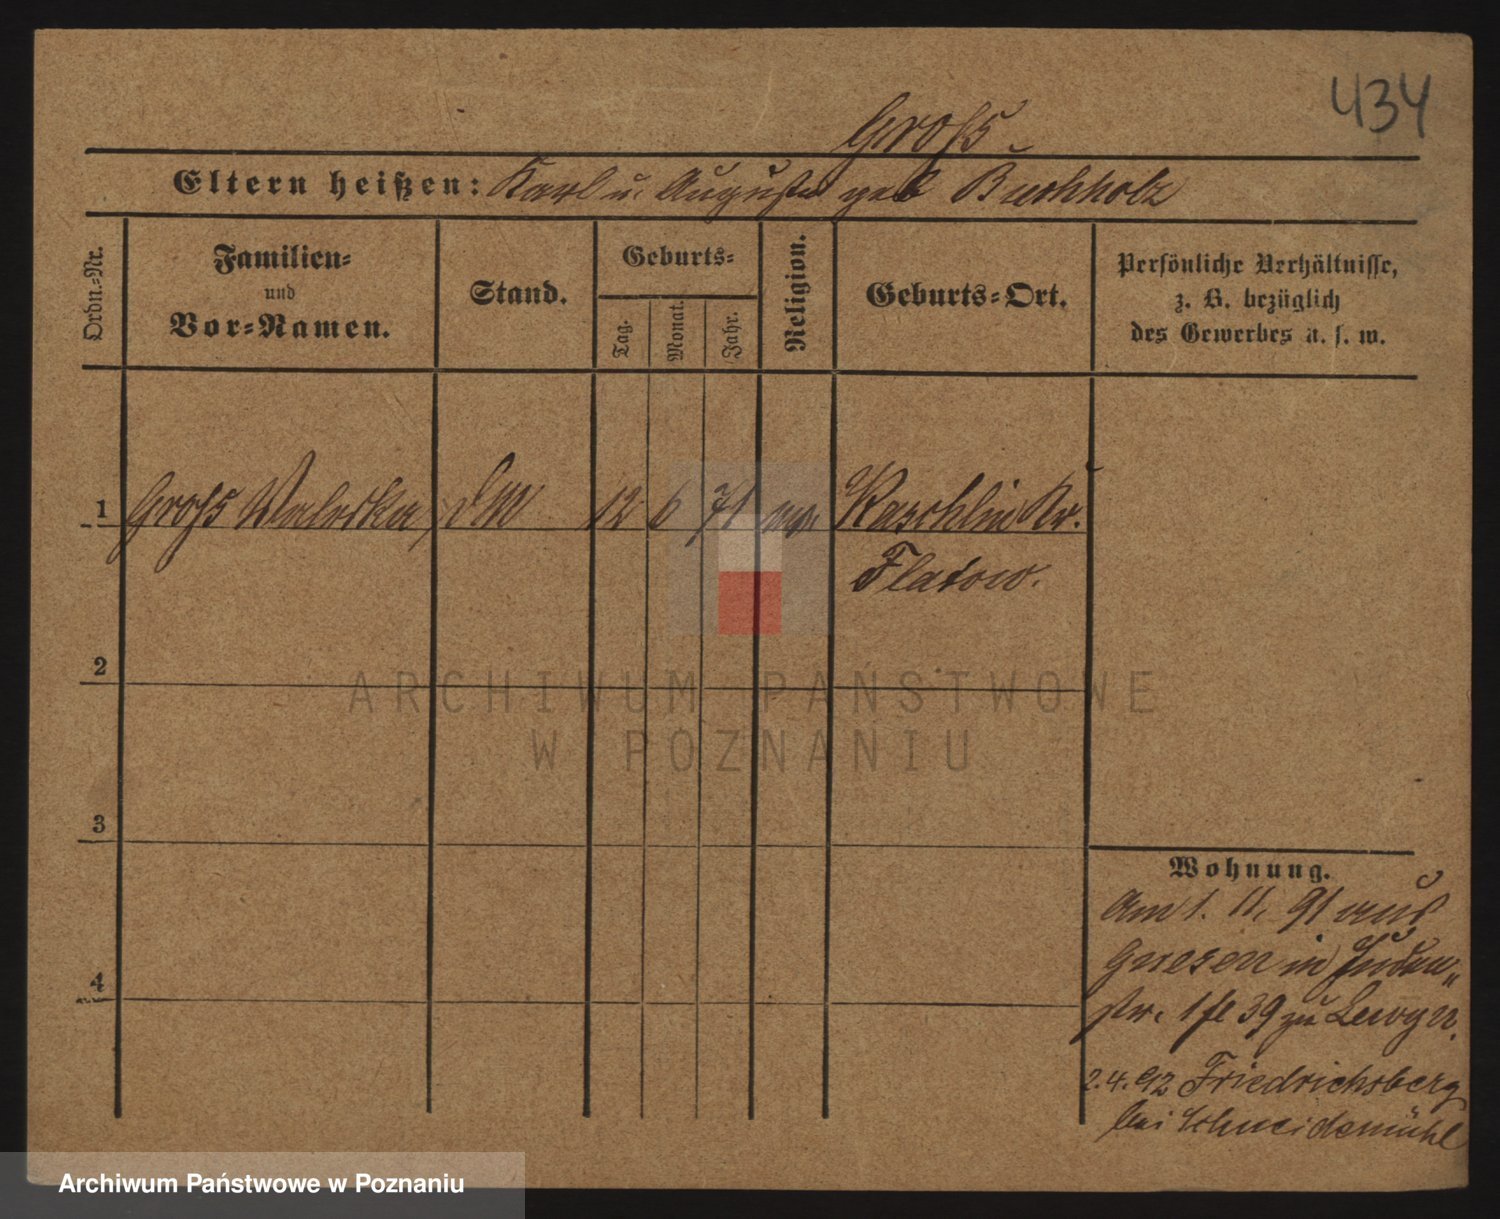 434
Groß
Eltern heißen: Karl u. Auguste geb Buchholz
Ordn.-Nr.
Familien-
und
Vor-Namen.
Stand.
Geburts-
Tag.
Monat.
Jahr.
Religion.
Geburts-Ort.
Persönliche Verhältnisse,
z. B. bezüglich
des Gewerbes u. s. w.
1 Groß Valeska 12 6 71 Kr.
Flatow.
2
3
4
Wohnung.
Am 1. 11. 91 aus
Gnesen in Juden-
str. 39 zu
2.4.92 Friedrichsberg
bei Schneidemühl
ARCHIWUM PAŃSTWOWE
W POZNANIU
Archiwum Państwowe w Poznaniu